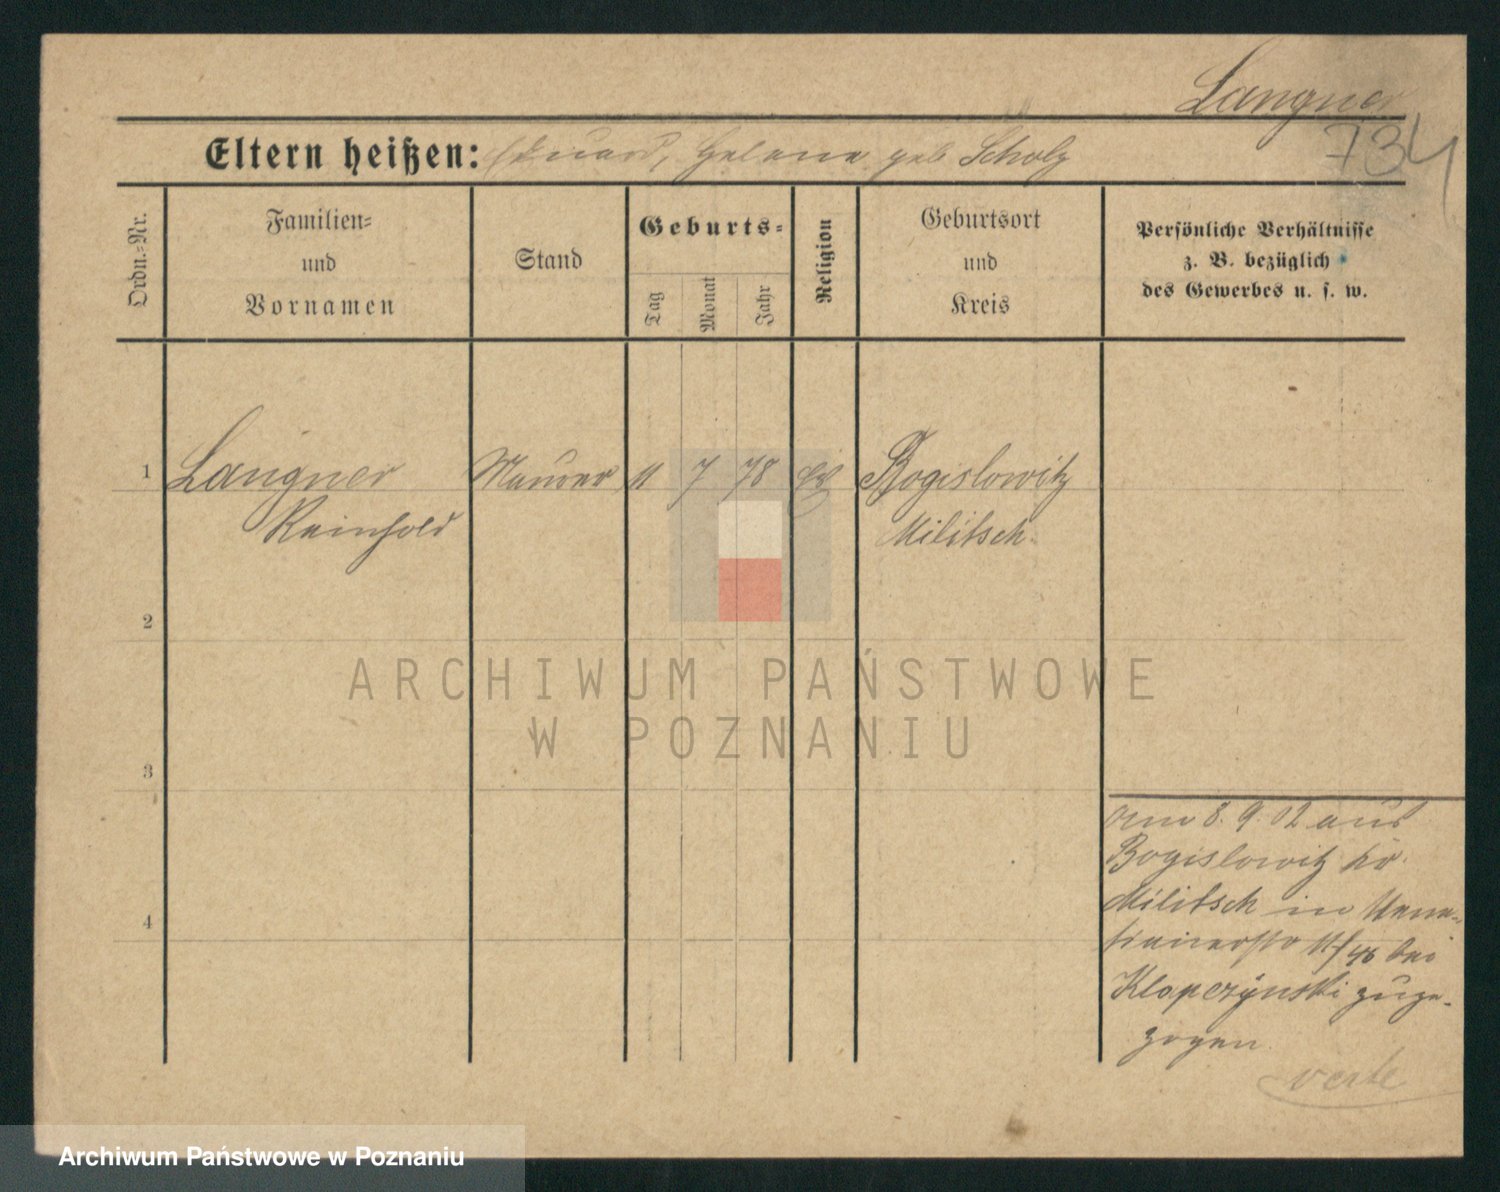 Langner
734
Eltern heißen: Eduard, Helene geb Scholz
Ordn.=Nr.
Familien=
und
Vornamen
Stand
Geburts=
Tag
Monat
Jahr
Religion
Geburtsort
und
Kreis
Persönliche Verhältnisse
z. B. bezüglich
des Gewerbes u. s. w.
1 Langner Maurer 11 7 78 Ev Bogislowitz
Reinhold Militsch.
2
3
4
am 8. 9. 02 aus
Bogislowitz Kr.
Militsch in
11/46 bei
Klopczynski zuge-
zogen.
verte
ARCHIWUM PAŃSTWOWE
W POZNANIU
Archiwum Państwowe w Poznaniu